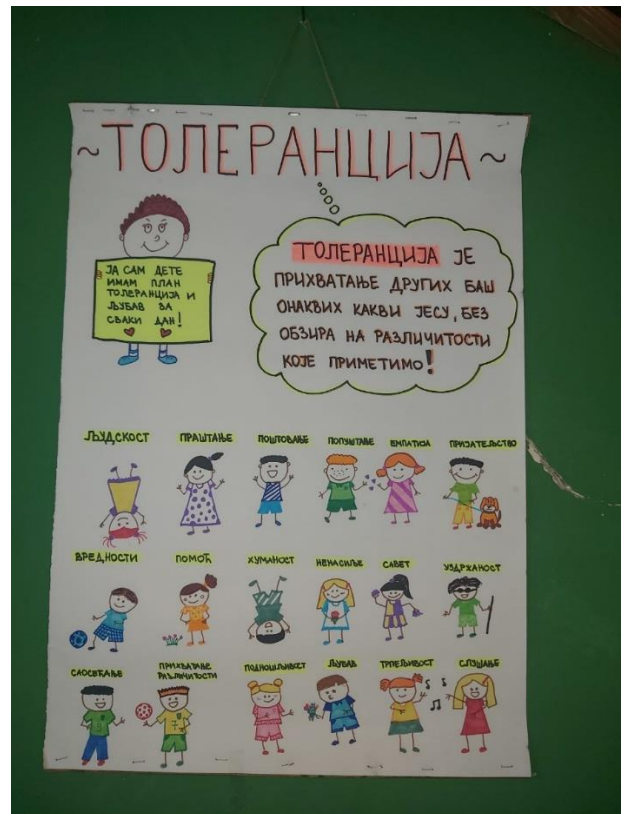 ~ТОЛЕРАНЦИЈА~
ЈА САМ ДЕТЕ
ИМАМ ПЛАН
ТОЛЕРАНЦИЈА И
ЉУБАВ ЗА
СВАКИ ДАН!
ТОЛЕРАНЦИЈА ЈЕ
ПРИХВАТАЊЕ ДРУГИХ БАШ
ОНАКВИХ КАКВИ ЈЕСУ, БЕЗ
ОБЗИРА НА РАЗЛИЧИТОСТИ
КОЈЕ ПРИМЕТИМО!
ЉУДСКОСТ ПРАШТАЊЕ ПОШТОВАЊЕ ПОПУШТАЊЕ ЕМПАТИЈА ПРИЈАТЕЉСТВО
ВРЕДНОСТИ ПОМОЋ ХУМАНОСТ НЕНАСИЉЕ САВЕТ УЗДРЖАНОСТ
САОСЕЋАЊЕ ПРИХВАТАЊЕ
РАЗЛИЧИТОСТИ ПОДНОШЉИВОСТ ЉУБАВ ТРПЕЉИВОСТ СЛУШАЊЕ